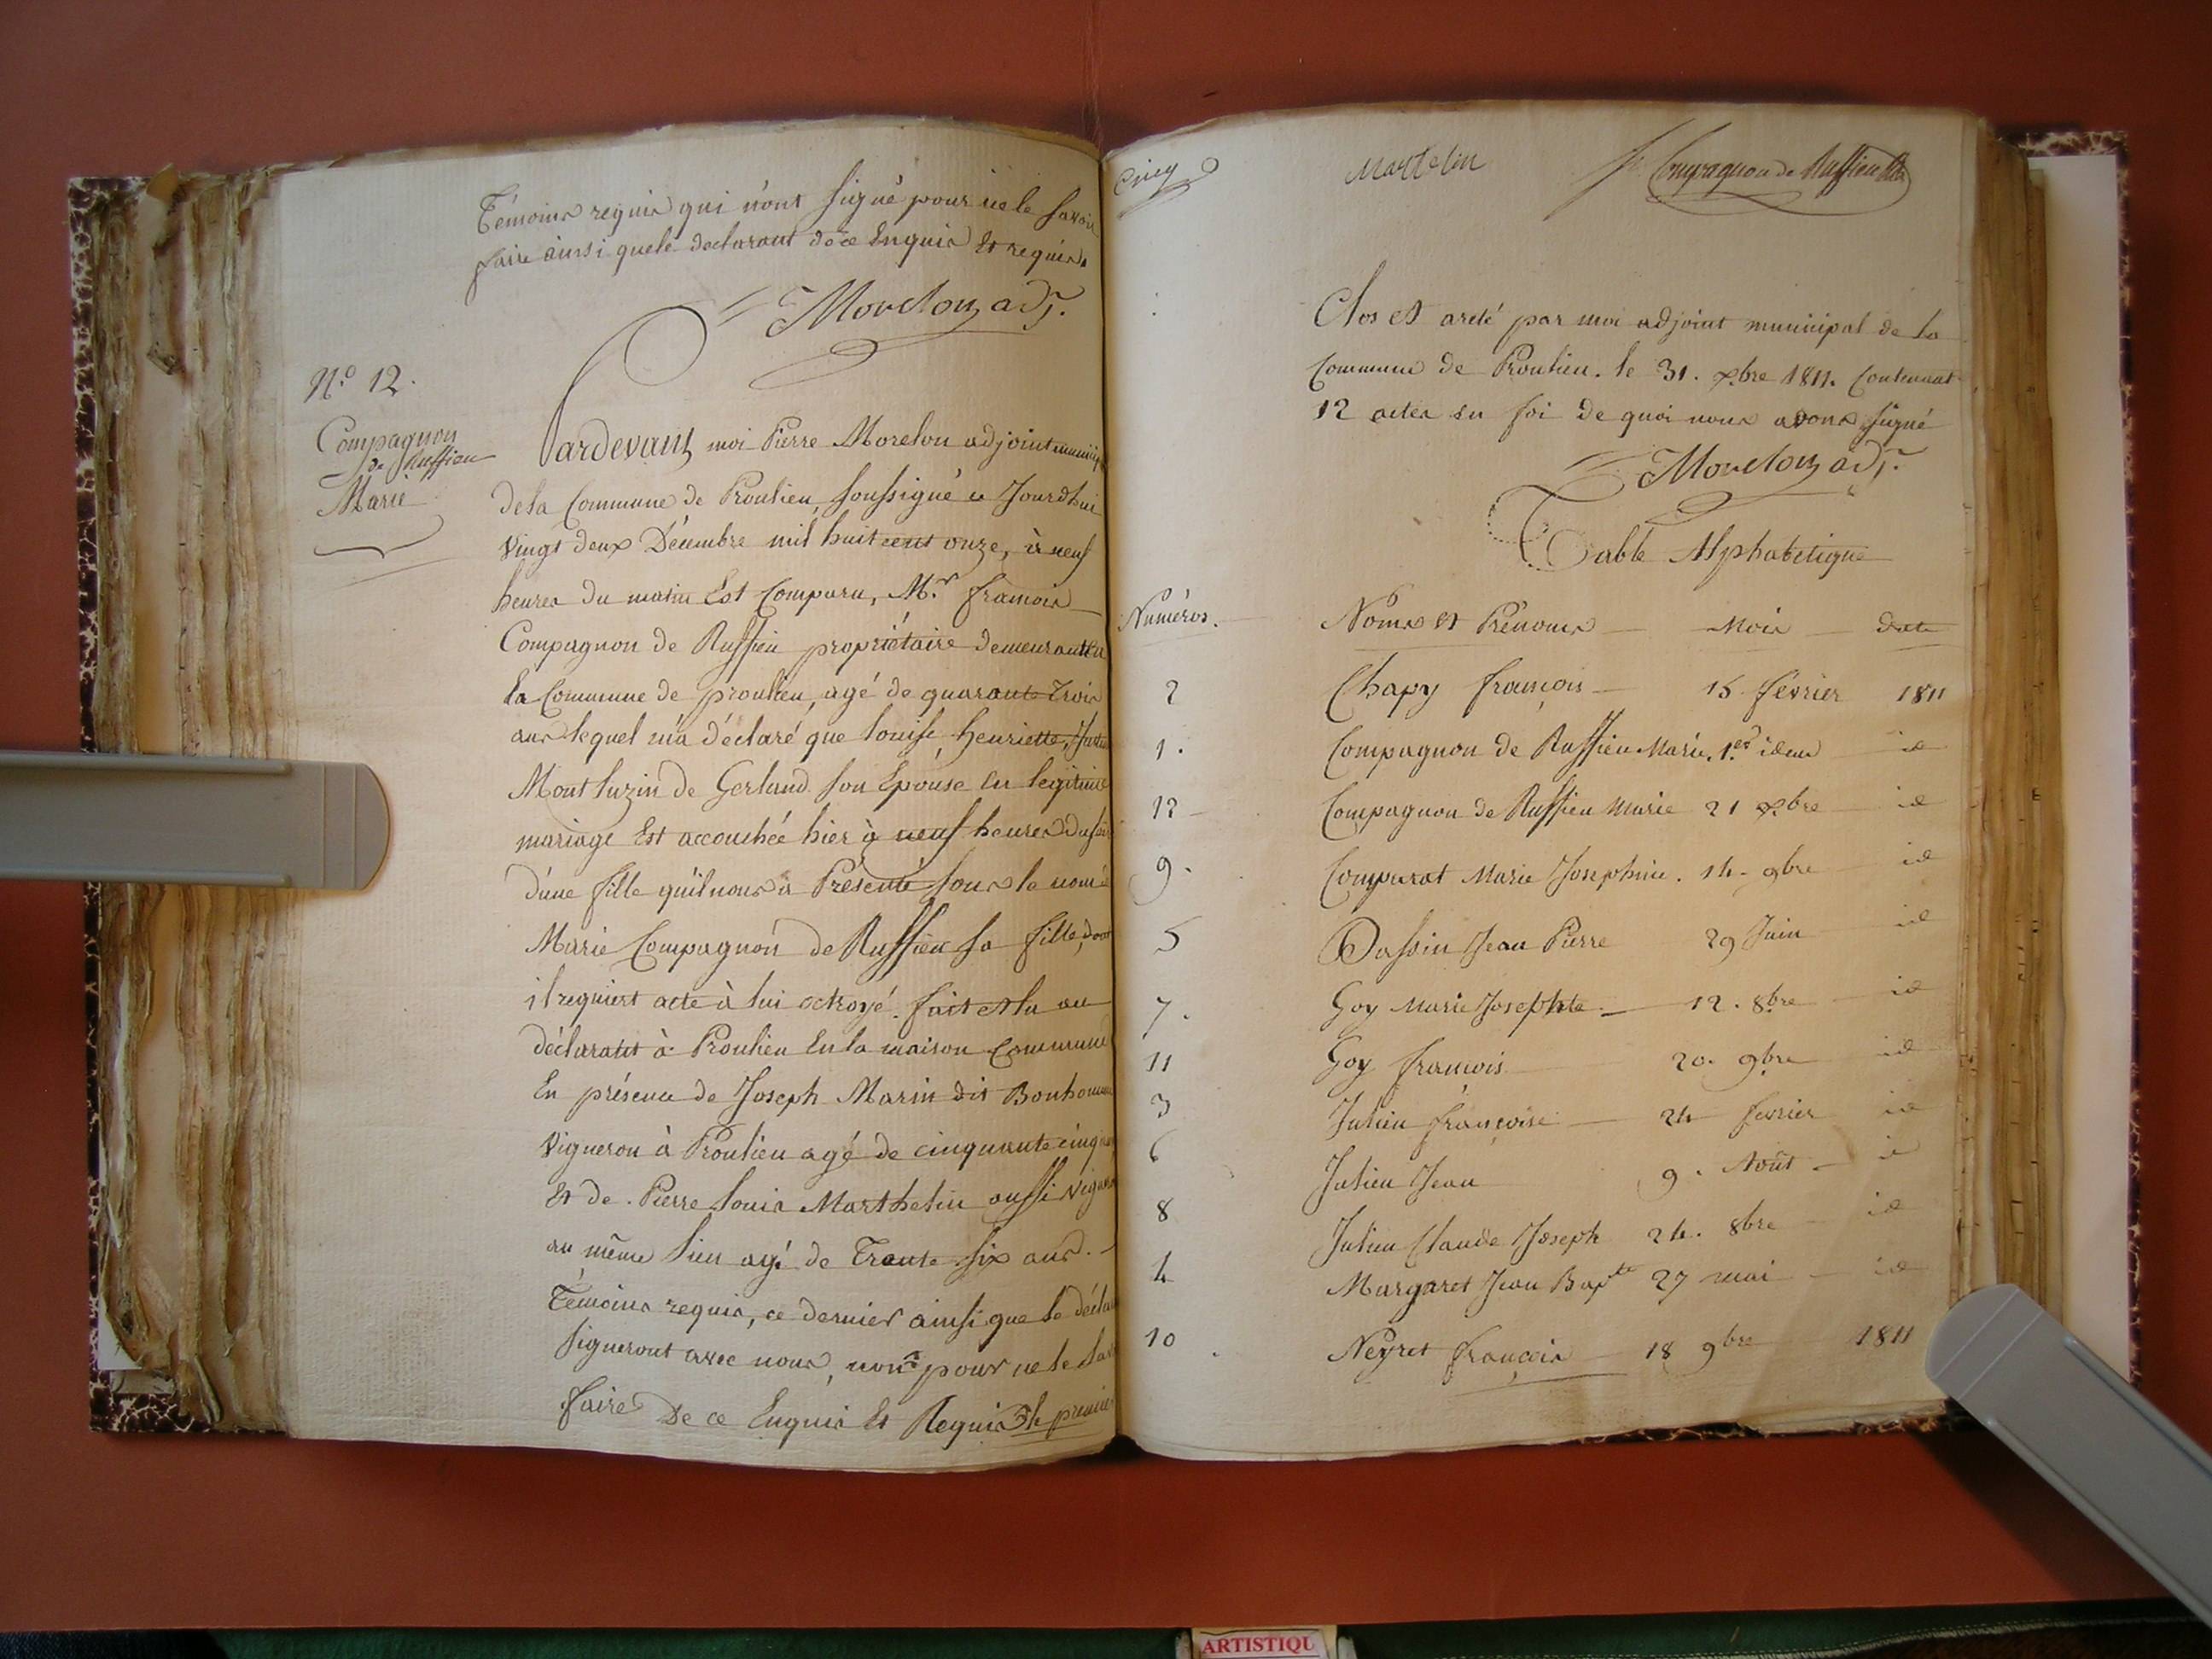 Témoins requis qui n'ont signé pour ne le savoir
faire ainsi que le declarant de ce Enquis Et requis.
Morelon adj.
N.o 12.
Compagnon
de Ruffieu
Marie
Pardevant moi Pierre Morelon adjoint municip
de la Commune de Proulieu, soussigné ce Jourdhui
Vingt deux Décembre mil huit cent onze, à neuf
heures du matin Est Comparu, M.r francois
Compagnon de Ruffieu propriétaire demeurant en
la Commune de proulieu, agé de quarante Trois
ans lequel m'a déclaré que louise, henriette,
Montluzin de Gerland son Epouse En legitime
mariage Est accouchée hier à neuf heures du soir
d'une fille qu'il nous a Présenté sous le nom de
Marie Compagnon de Ruffieu sa fille, dont
il requiert acte à lui octroyé. fait et lu au
déclarant à Proulieu En la maison Commune
En présence de Joseph Marin dit Bonhomme
Vigneron à Proulieu agé de cinquante cinq ans
Et de Pierre louis Marthelin aussi Vigneron
au même lieu agé de Trente six ans.
Témoins requis, ce dernier ainsi que le décla
signeront avec nous, non pour ne le
faire De ce Enquis Et Requis le premier
Cinq
Martelin
Compagnon de Ruffieu
Clos et areté par moi adjoint municipal de la
Commune de Proulieu. le 31. xbre 1811. Contenant
12 actes en foi de quoi nous avons signé
Morelon adj.
Table Alphabetique
Numéros. Noms et Prénoms Mois date
2 Chapy françois 15 février 1811
1. Compagnon de Ruffieu Marie. 1.er idem id
12 Compagnon de Ruffieu Marie 21 xbre id
9. Comparat Marie Josephine. 14 9bre id
5 Dassin Jean Pierre 29 Juin id
7. Goy Marie Josephte 12. 8bre id
11 Goy françois 20. 9bre id
3 Julien françoise 24 fevrier id
6 Julien Jean 9. Août id
8 Julien Claude Joseph 24. 8bre id
4 Margaret Jean Bapte 27 mai id
10 Neyret françois 18 9bre 1811
ARTISTIQU